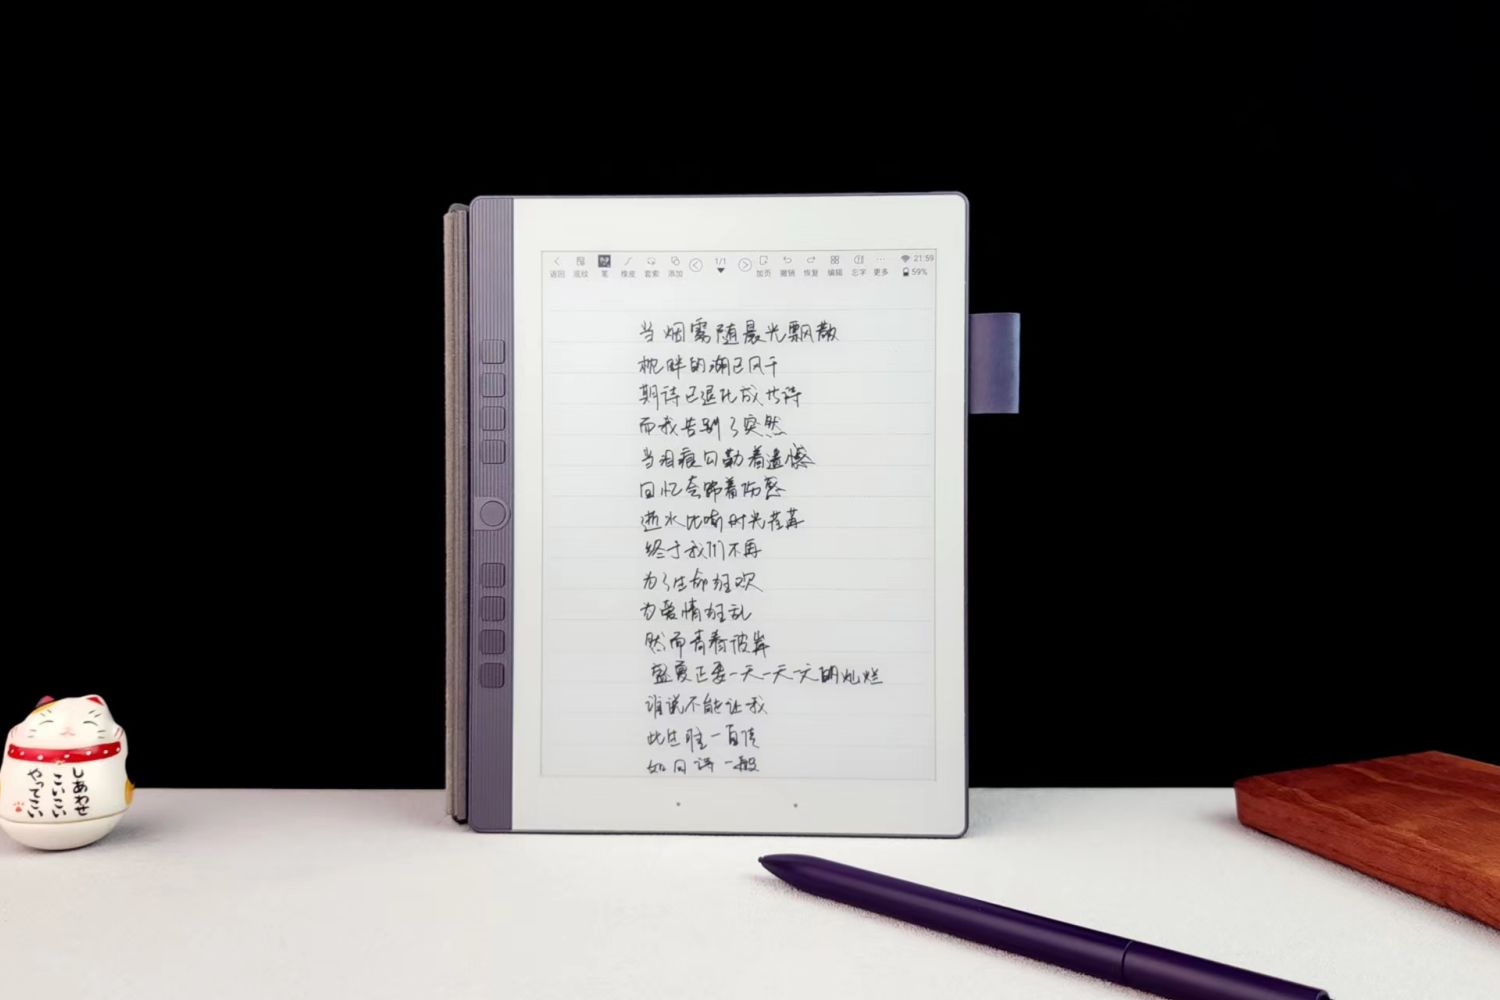 返回 底纹 笔 橡皮 套索 添加 1/1 加页 撤销 恢复 编辑 忘字 更多
21:59
59%
当烟雾随晨光飘散
枕畔的湖已风干
期待已退化成等待
而我告别了突然
当泪痕勾勒着遗憾
回忆夸饰着伤感
逝水比喻时光荏苒
终于我们不再
为了生命狂欢
为爱情狂乱
然而青春彼岸
盛夏正要一天一天一天的灿烂
谁说不能让我
此生唯一自传
如同诗一般
しあわせ
こいこい
やってこい